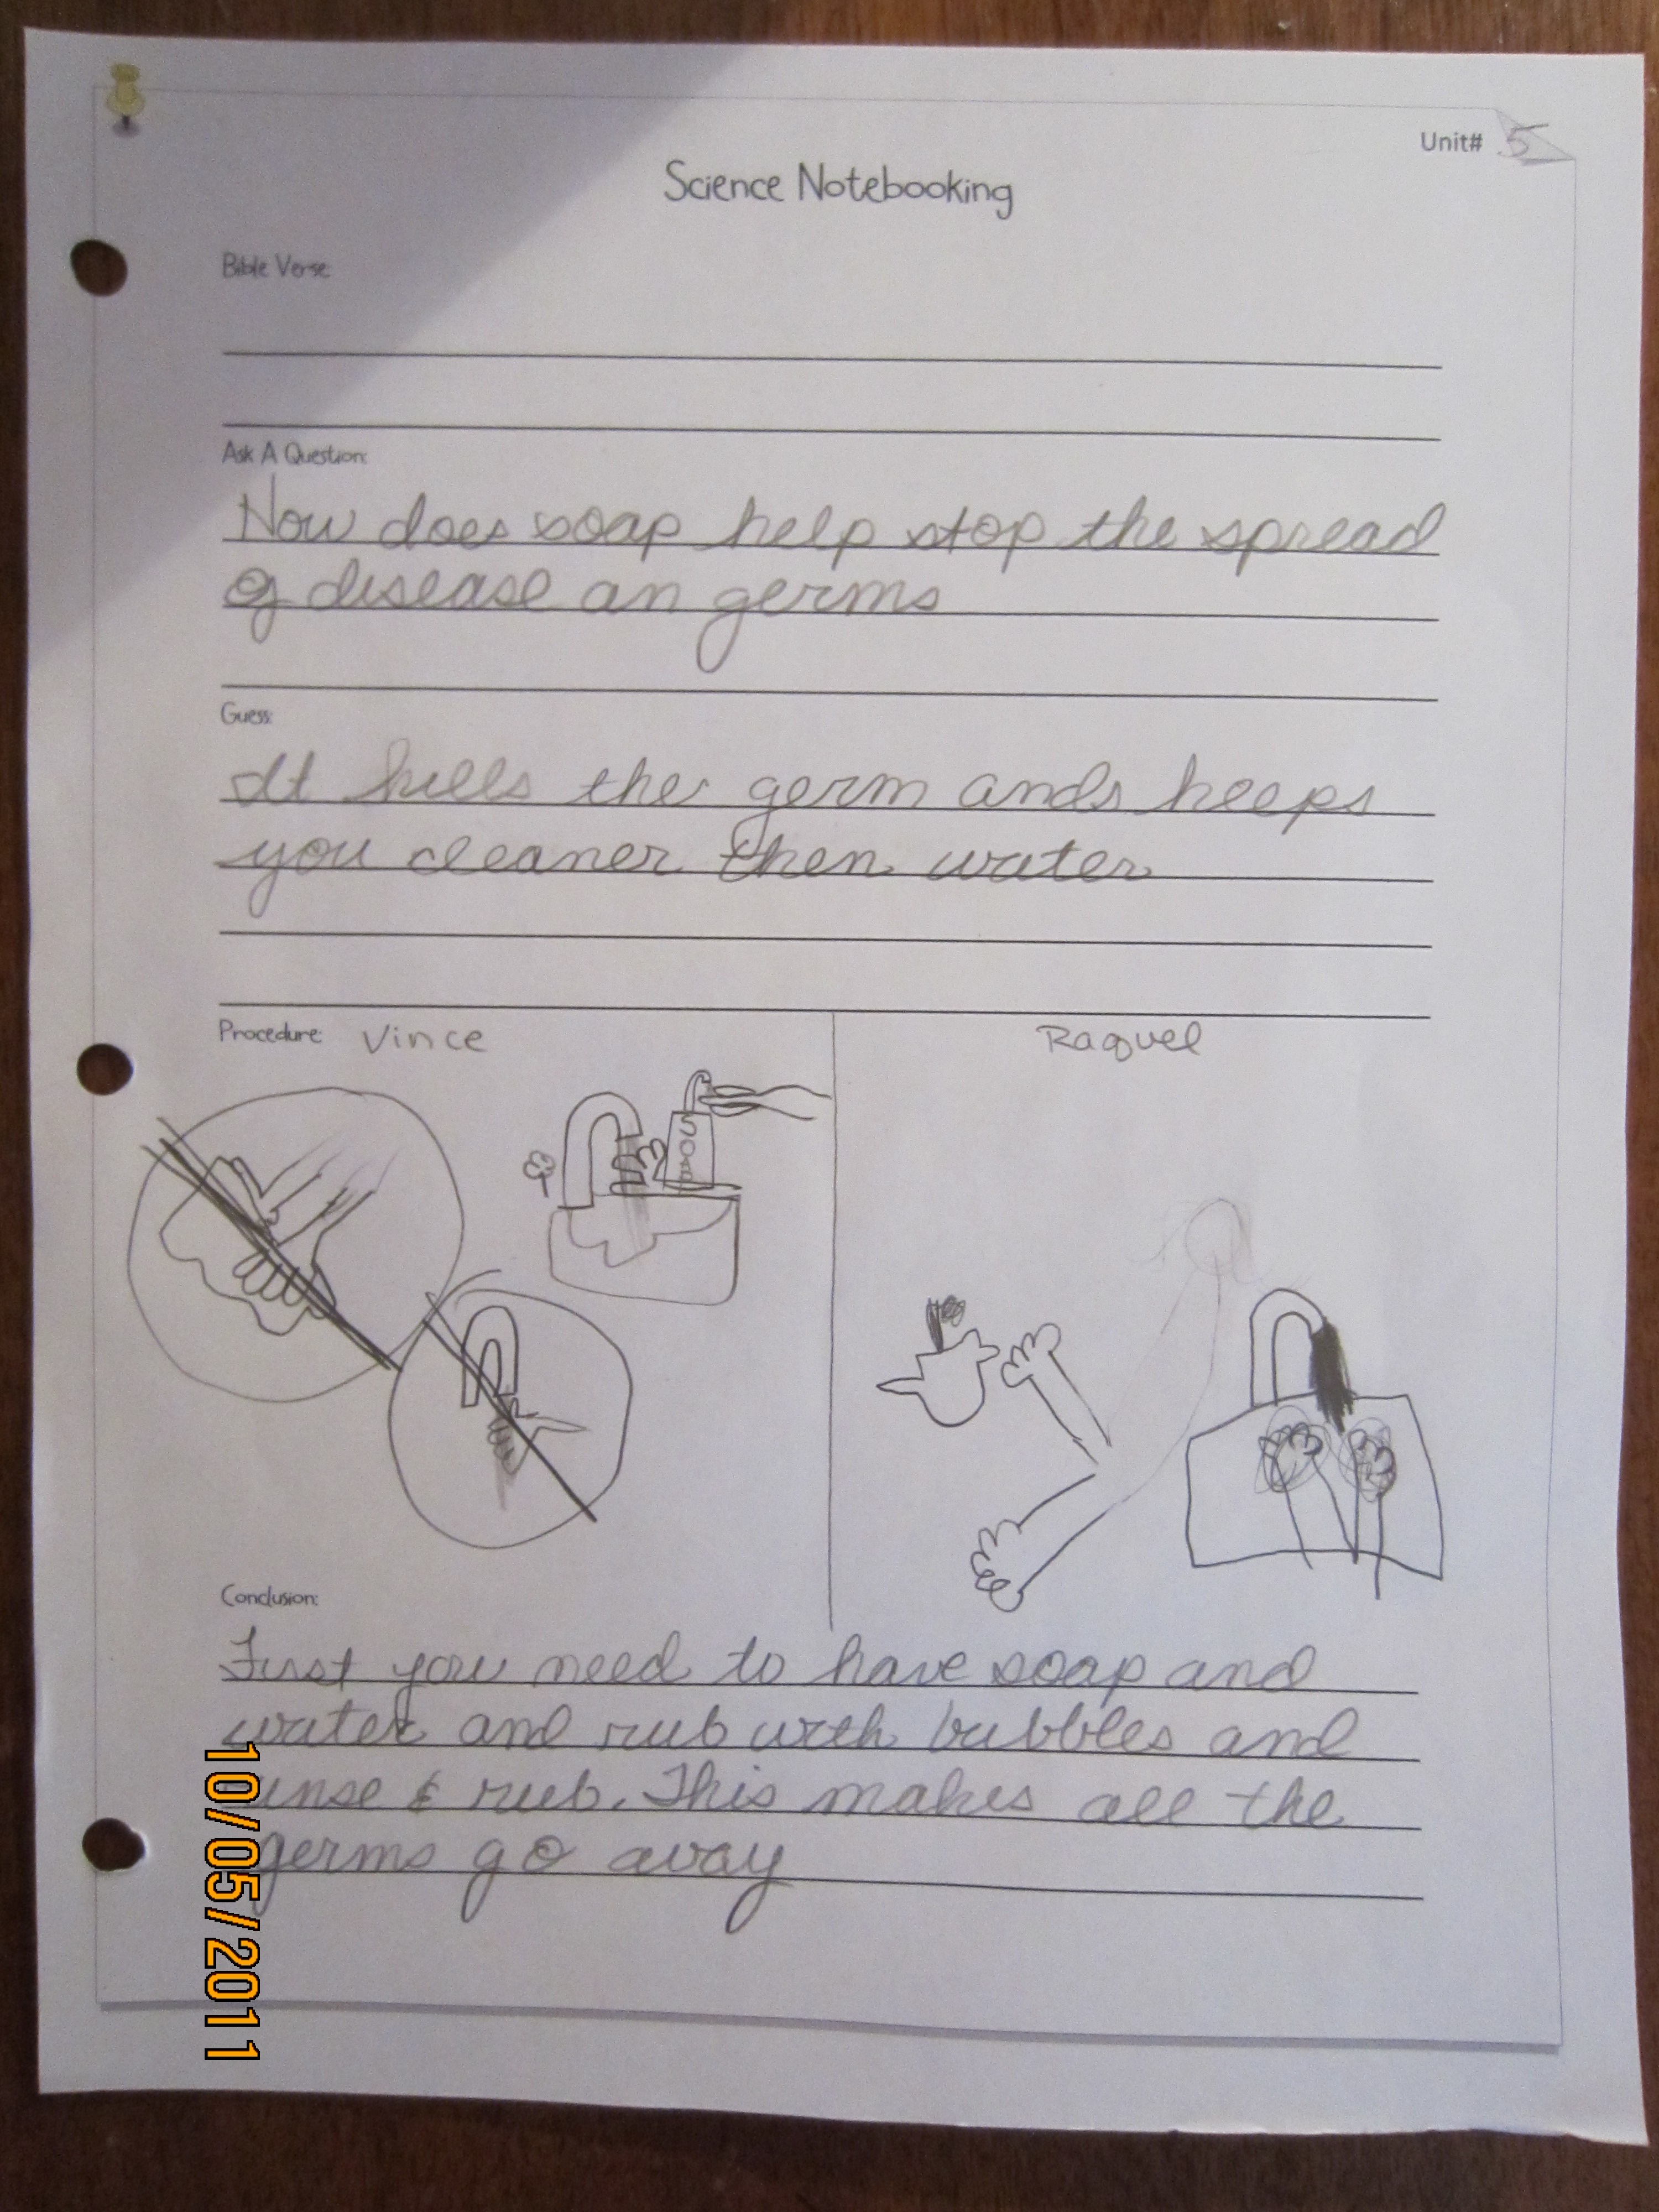 Unit# 5
Science Notebooking
Bible Verse:
Ask A Question:
How does soap help stop the spread
of disease an germs
Guess:
It kills the germ ands keeps
you cleaner then water
Procedure: Vince
Raquel
SOAP
Conclusion:
First you need to have soap and
water and rub with bubbles and
rinse & rub. This makes all the
germs go away
10/05/2011